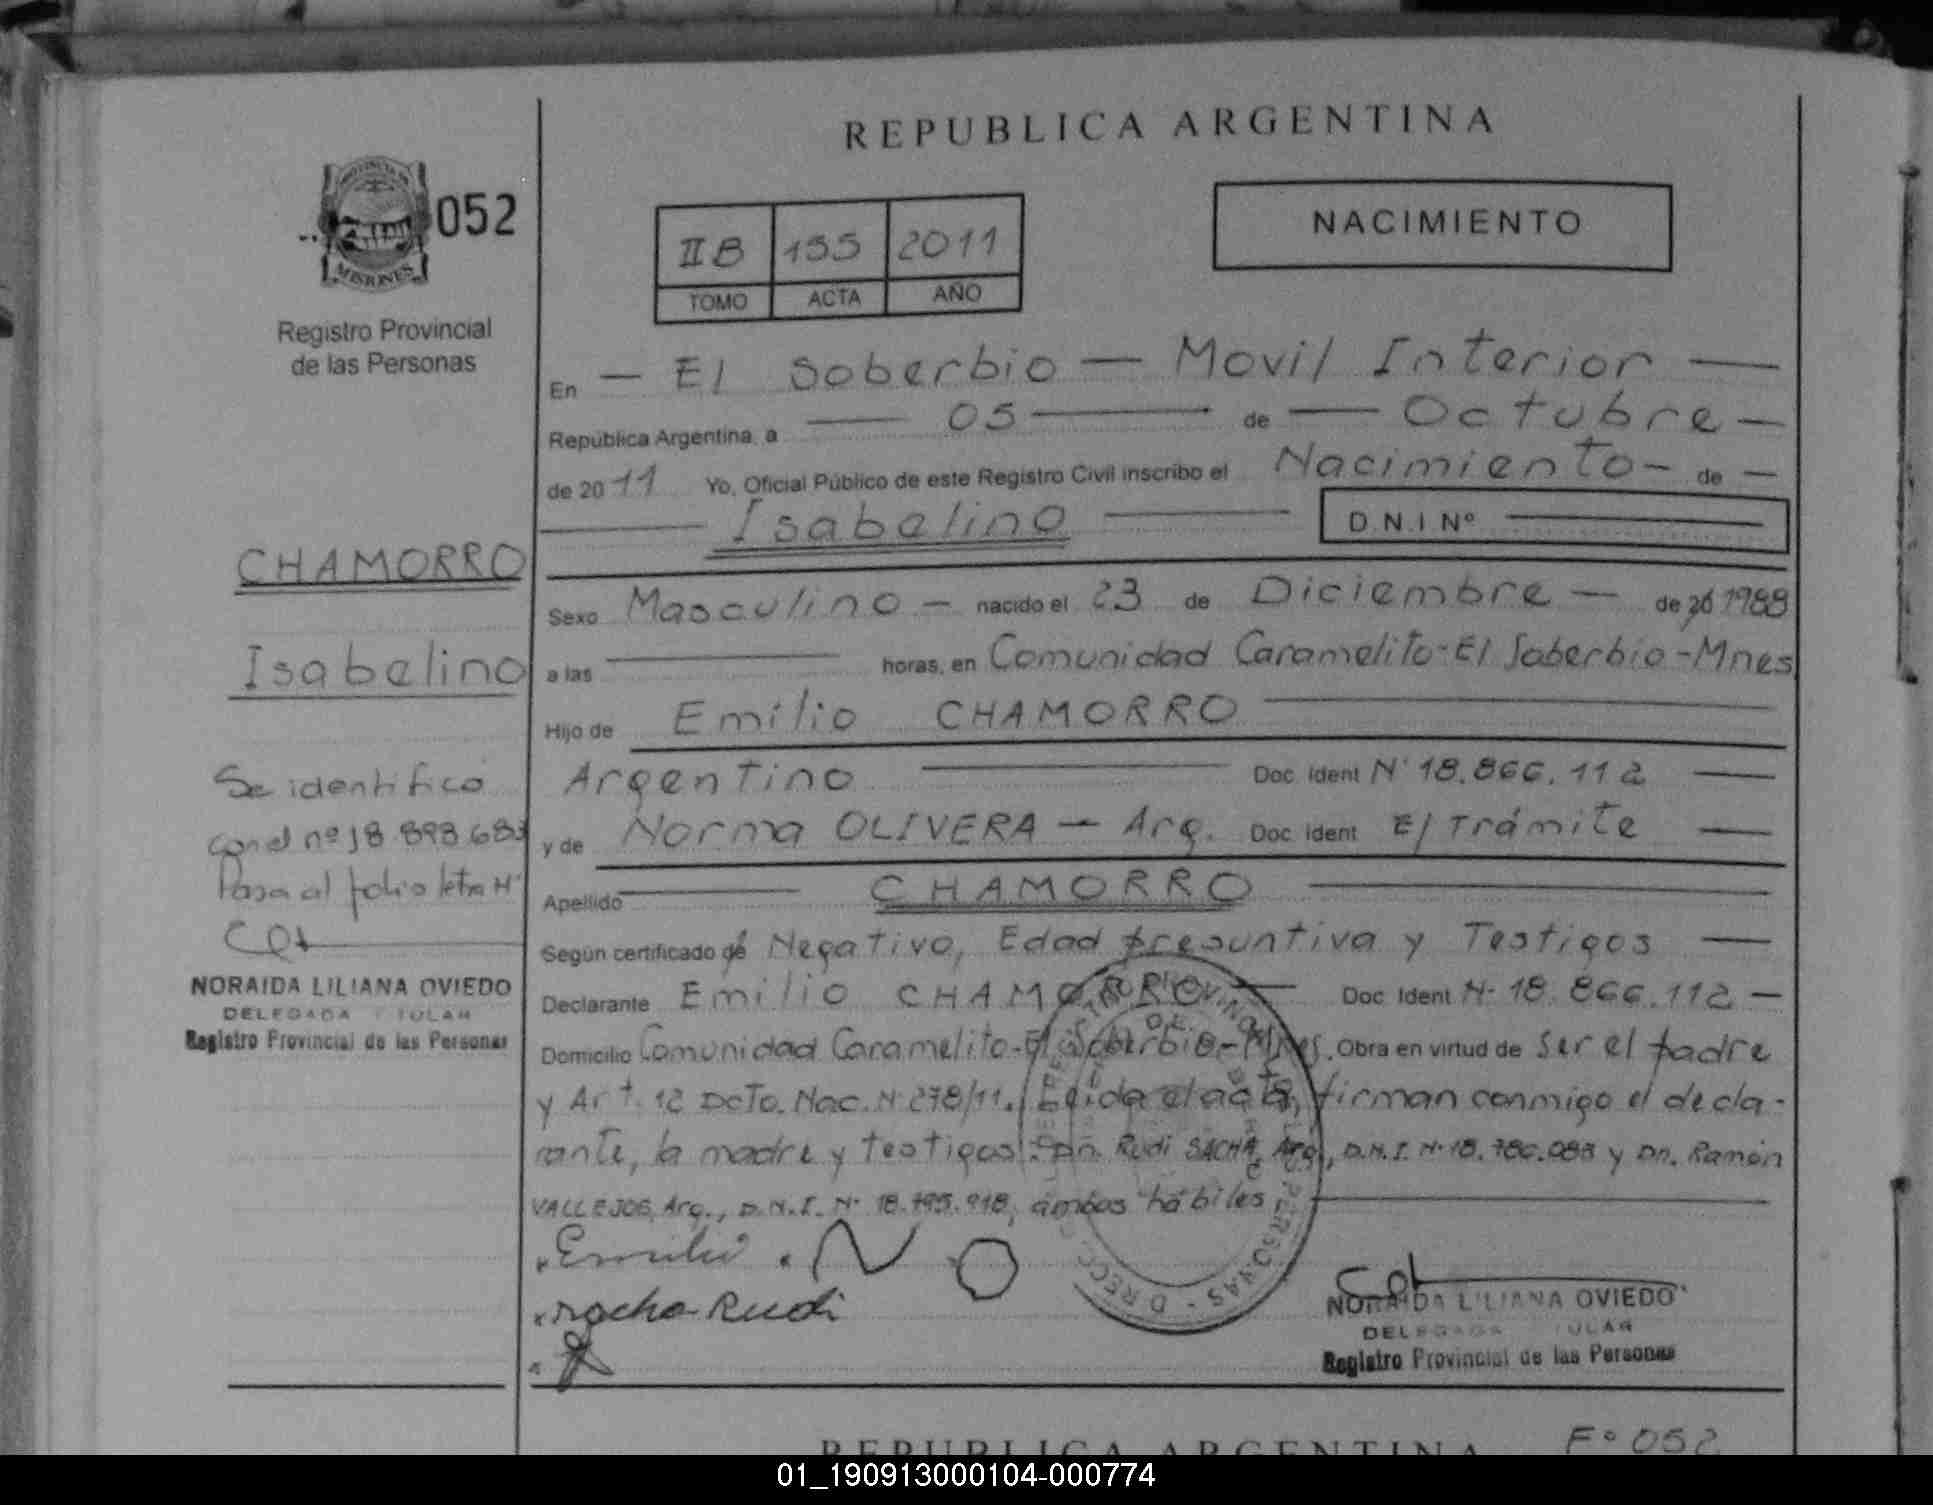 REPUBLICA ARGENTINA
PROVINCIA DE
MISIONES
052
Registro Provincial
de las Personas
II B 155 2011
TOMO ACTA AÑO
NACIMIENTO
En — El Soberbio — Movil Interior —
República Argentina, a — 05 — de — Octubre —
de 2011 Yo, Oficial Público de este Registro Civil inscribo el Nacimiento - de —
— Isabelino — D.N.I Nº —
CHAMORRO
Isabelino
Sexo Masculino — nacido el 23 de Diciembre — de 20 1988
a las — horas, en Comunidad Caramelito - El Soberbio - Mnes
Hijo de Emilio CHAMORRO —
Argentino — Doc. Ident Nº 18.866.112 —
y de Norma OLIVERA — Arg. Doc. Ident E/ Trámite —
Apellido — CHAMORRO —
Se identificó
con el nº 18.898.683
Pasa al folio letra H
NORAIDA LILIANA OVIEDO
DELEGADA TITULAR
Registro Provincial de las Personas
Según certificado de Negativo, Edad presuntiva y Testigos —
Declarante Emilio CHAMORRO — Doc. Ident N· 18.866.112 —
Domicilio Comunidad Caramelito - El Soberbio - Mnes. Obra en virtud de ser el padre
y Art. 12 Dcto. Nac. N· 278/11. Leida el acta, firman conmigo el decla-
rante, la madre y testigos: Dn. Rudi SACHA, Arg., D.N.I. N· 18.786.083 y Dn. Ramón
VALLEJOS, Arg., D.N.I. N· 18.795.918, ambos hábiles —
Emilio
Sacha Rudi
NORAIDA LILIANA OVIEDO
DELEGADA TITULAR
Registro Provincial de las Personas
REPUBLICA ARGENTINA
Fº 052
01_190913000104-000774